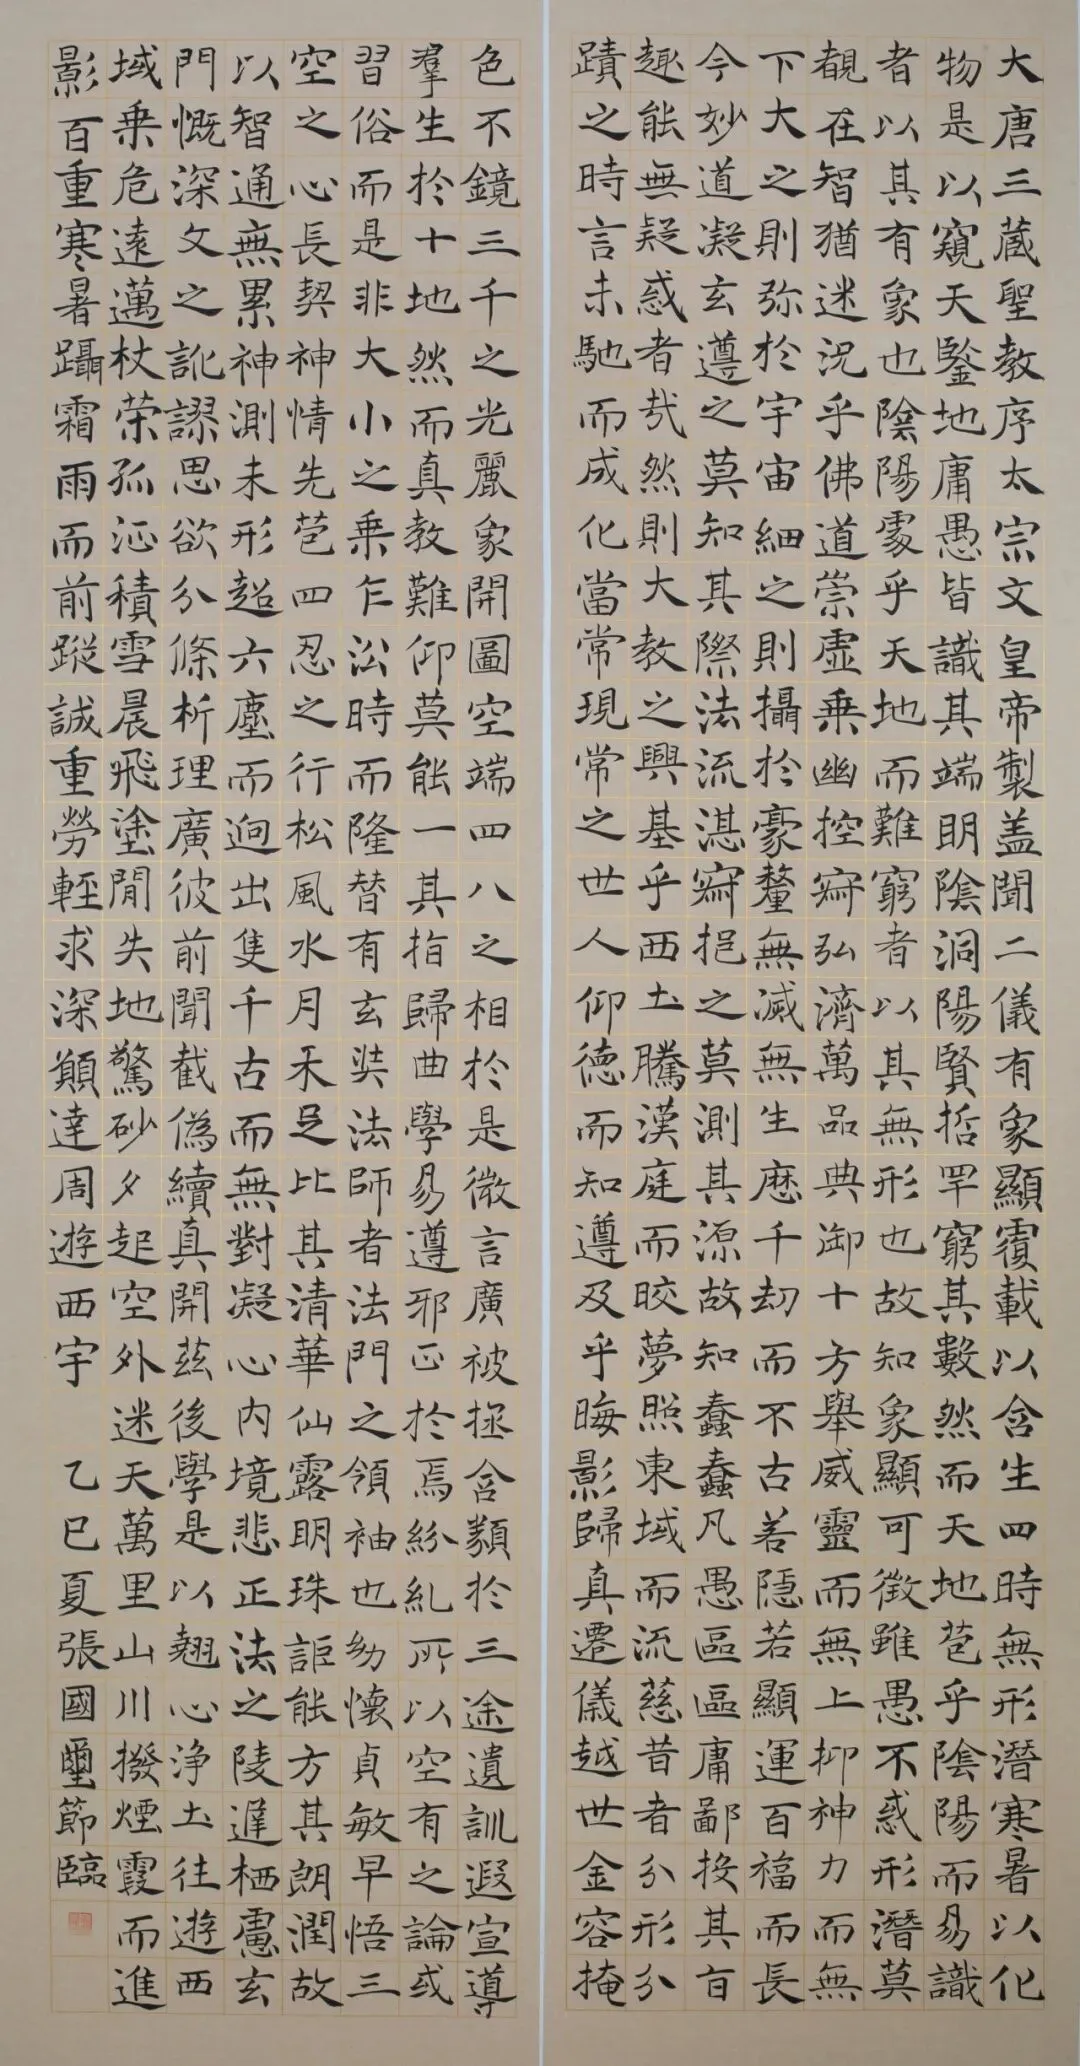 大唐三藏聖教序太宗文皇帝製盖聞二儀有象顯覆載以含生四時無形潛寒暑以化
物是以窺天鑒地庸愚皆識其端明陰洞陽賢哲罕窮其數然而天地苞乎陰陽而易識
者以其有象也陰陽處乎天地而難窮者以其無形也故知象顯可徵雖愚不惑形潛莫
覩在智猶迷況乎佛道崇虛乗幽控寂弘濟萬品典御十方舉威靈而無上抑神力而無
下大之則弥於宇宙細之則攝於豪釐無滅無生歷千劫而不古若隱若顯運百福而長
今妙道凝玄遵之莫知其際法流湛寂挹之莫測其源故知蠢蠢凡愚區區庸鄙投其旨
趣能無疑惑者哉然則大教之興基乎西土騰漢庭而皎夢照東域而流慈昔者分形分
蹟之時言未馳而成化當常現常之世人仰德而知遵及乎晦影歸真遷儀越世金容掩
色不鏡三千之光麗象開圖空端四八之相於是微言廣被拯含類於三途遺訓遐宣導
羣生於十地然而真教難仰莫能一其指歸曲學易遵邪正於焉紛糺所以空有之論或
習俗而是非大小之乗乍沿時而隆替有玄奘法師者法門之領袖也幼懷貞敏早悟三
空之心長契神情先苞四忍之行松風水月未足比其清華仙露明珠詎能方其朗潤故
以智通無累神測未形超六塵而迥出隻千古而無對凝心內境悲正法之陵遲栖慮玄
門慨深文之訛謬思欲分條析理廣彼前聞截偽續真開茲後學是以翹心淨土往遊西
域乗危遠邁杖策孤征積雪晨飛塗閒失地驚砂夕起空外迷天萬里山川撥煙霞而進
影百重寒暑躡霜雨而前蹤誠重勞輕求深願達周遊西宇 乙巳夏張國璽節臨